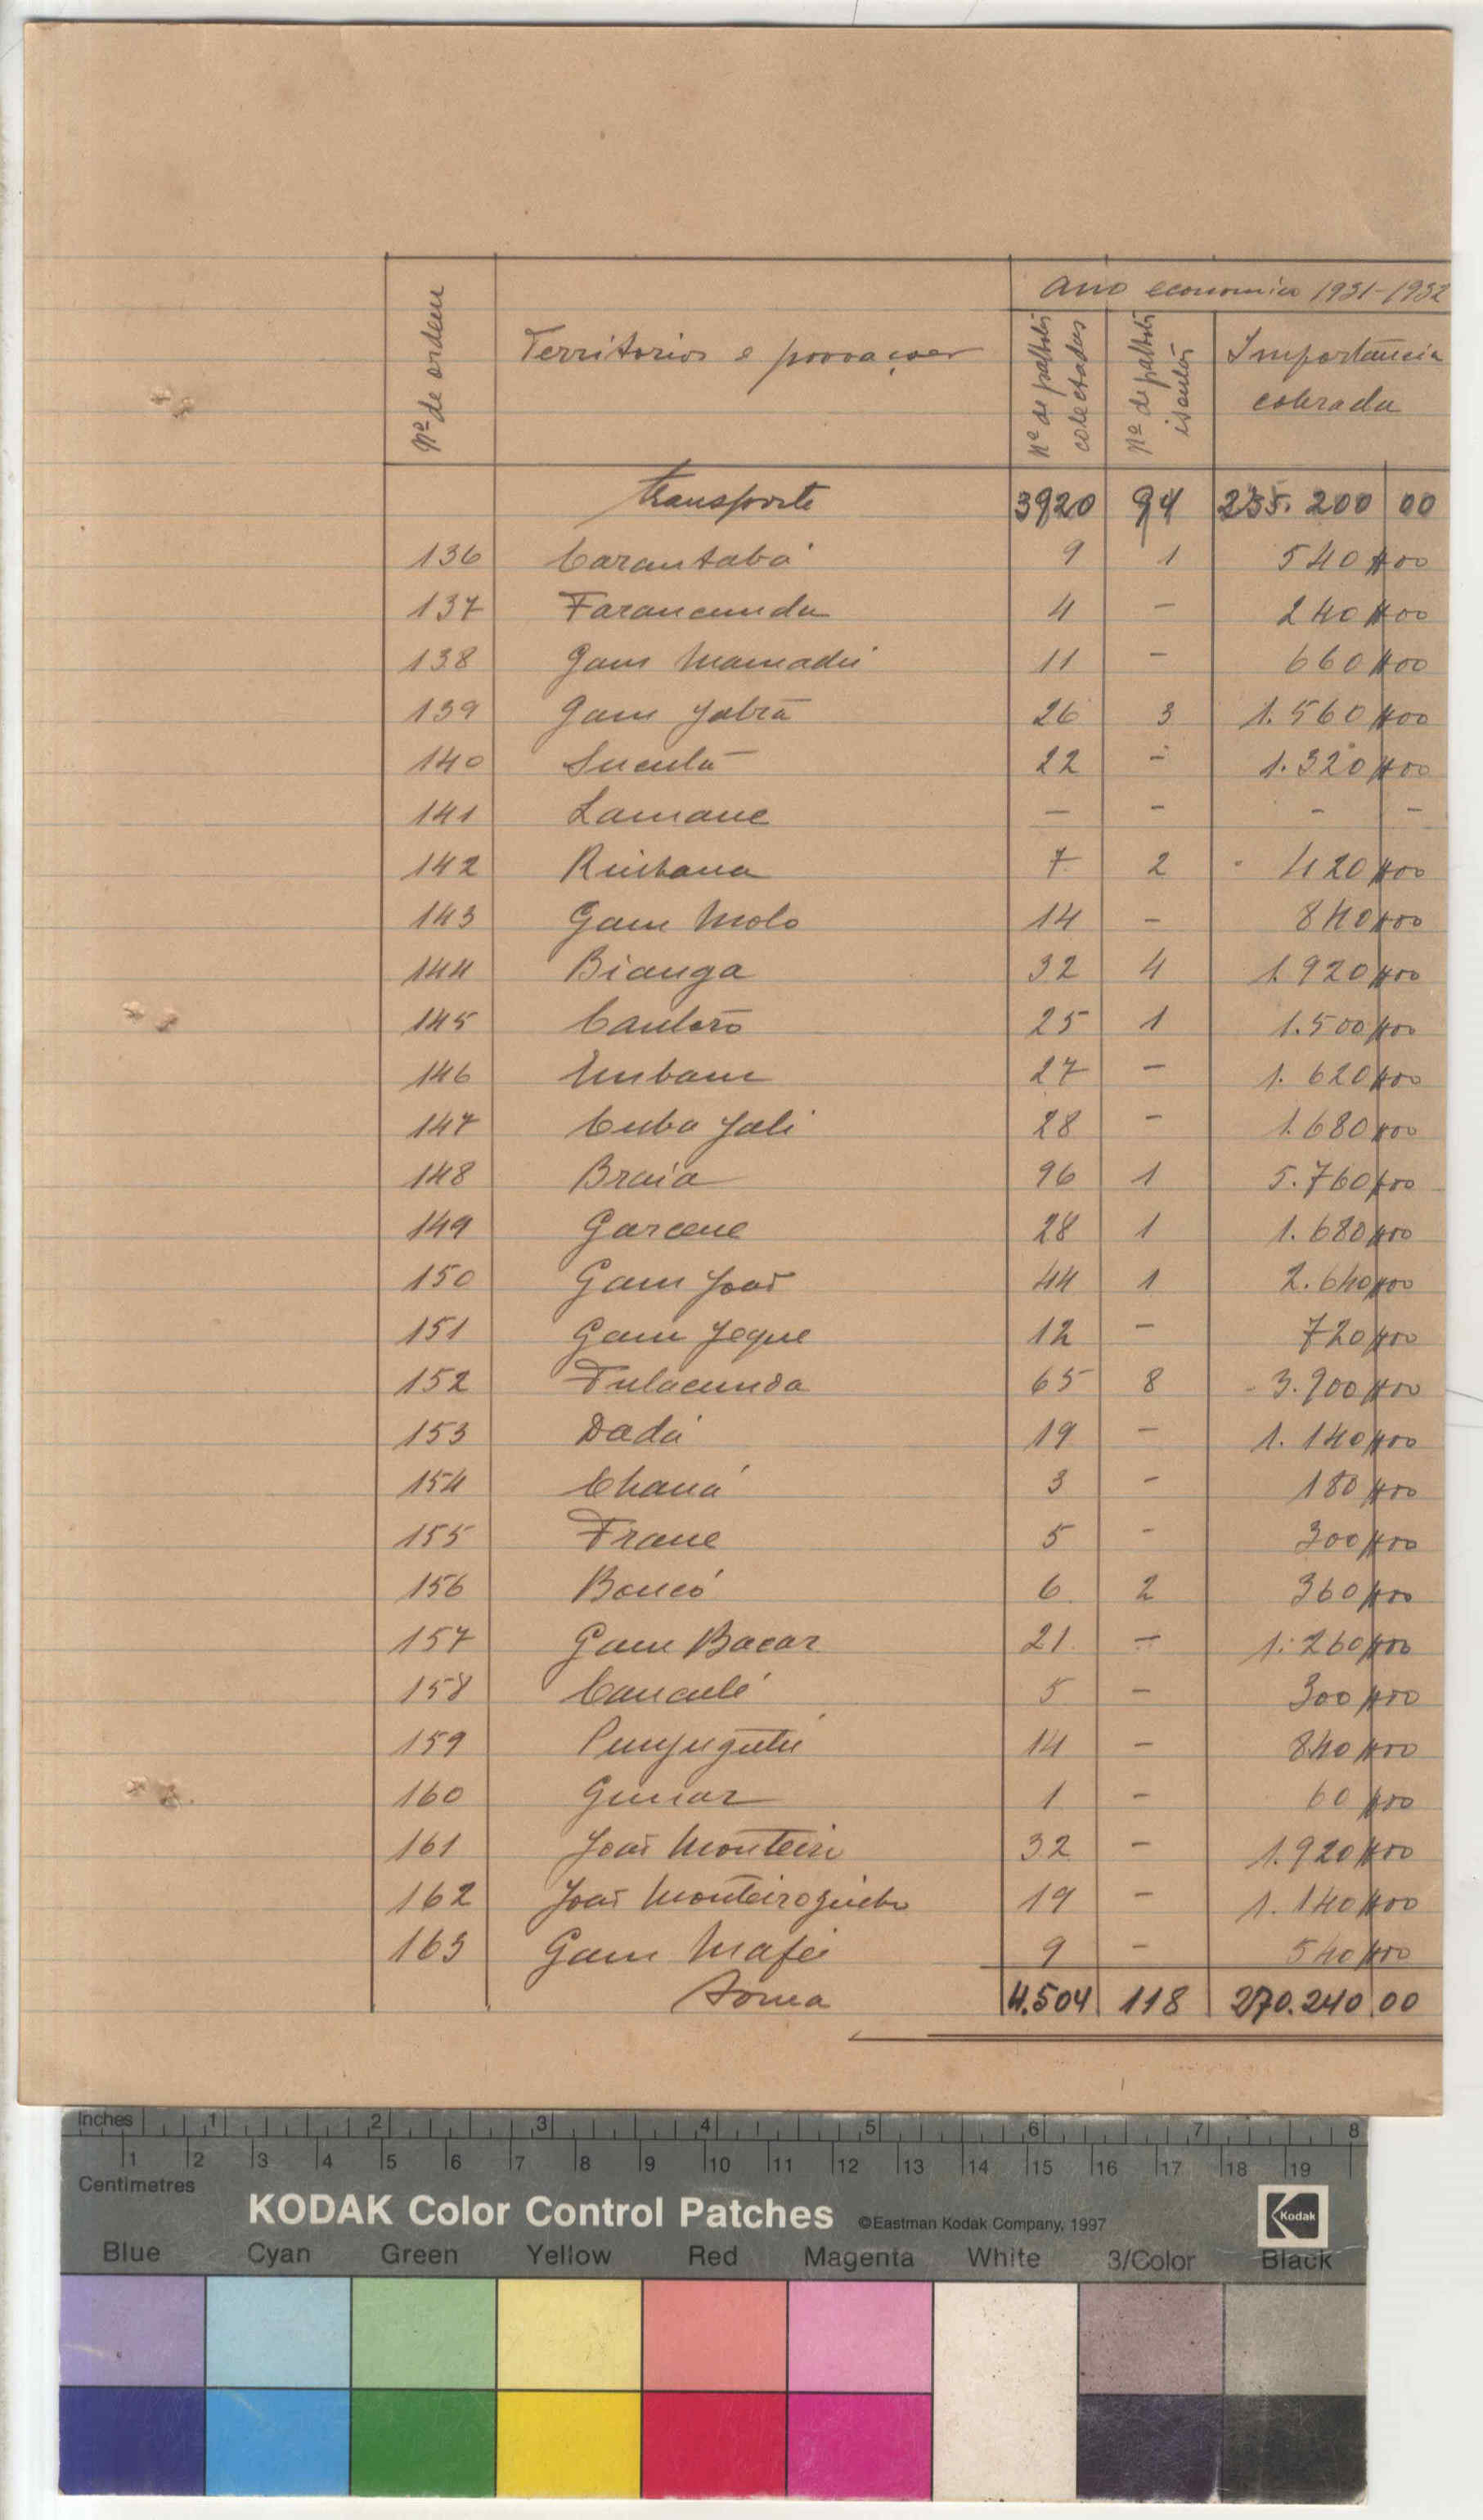 Ano economico 1931-1932
Nº de ordem
Territorios e povoações
Nº de palhotas colectadas
Nº de palhotas isentas
Importancia cobrada
Transporte 3920 94 235.200 00
136 Carantabá 9 1 540$00
137 Farancunda 4 - 240$00
138 Gam Mamadú 11 - 660$00
139 Gam Jabrã 26 3 1.560$00
140 Sucutã 22 - 1.320$00
141 Lamane - - - -
142 7 2 420$00
143 Gam Molo 14 - 840$00
144 Bianga 32 4 1.920$00
145 25 1 1.500$00
146 27 - 1.620$00
147 Cuba Jali 28 - 1.680$00
148 Braia 96 1 5.760$00
149 Garcene 28 1 1.680$00
150 Gam João 44 1 2.640$00
151 Gam Jeque 12 - 720$00
152 Fulacunda 65 8 3.900$00
153 Dadá 19 - 1.140$00
154 Chaná 3 - 180$00
155 Frane 5 - 300$00
156 Boncó 6 2 360$00
157 Gam Bacar 21 - 1.260$00
158 5 - 300$00
159 14 - 840$00
160 1 - 60$00
161 João Monteiro 32 - 1.920$00
162 João Monteiro 19 - 1.140$00
163 Gam Mafé 9 - 540$00
Soma 4.504 118 270.240 00
Inches 1 2 3 4 5 6 7 8
1 2 3 4 5 6 7 8 9 10 11 12 13 14 15 16 17 18 19
Centimetres
KODAK Color Control Patches ©Eastman Kodak Company, 1997 Kodak
Blue Cyan Green Yellow Red Magenta White 3/Color Black